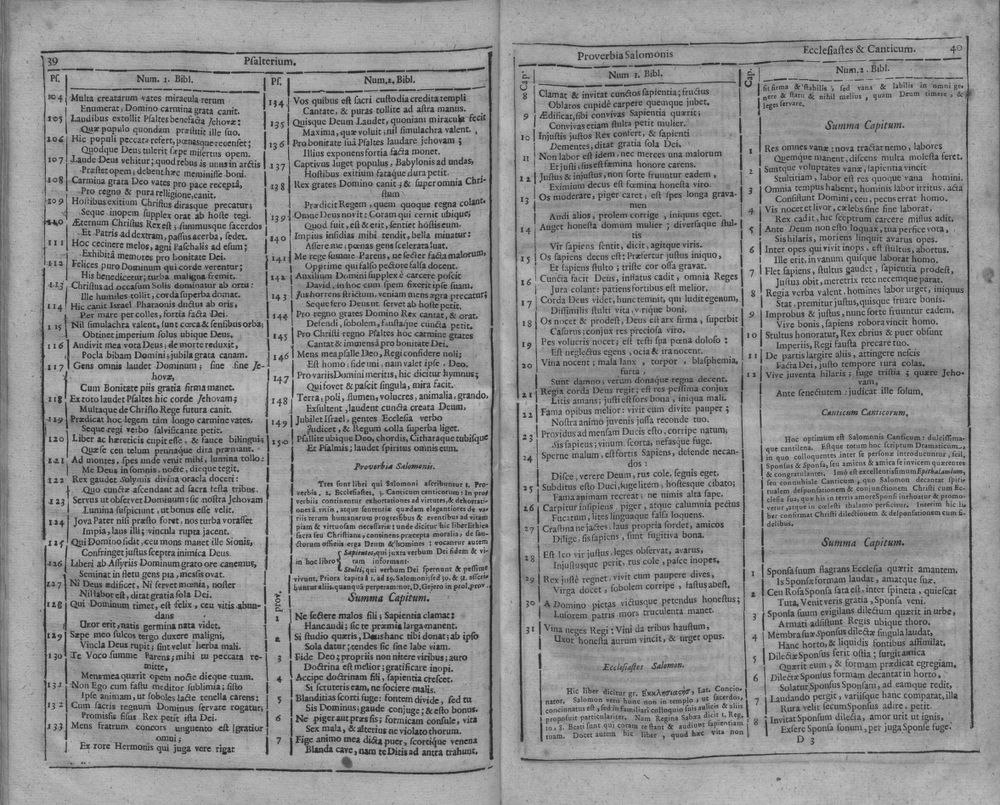 39
Psalterium.
Ps.
Num. 1. Bibl.
104 Multa creatarum vates miracula rerum
Enumerat, Domino carmina grata canit.
105 Laudibus extollit Psaltes benefacta Jehovæ:
Quæ populo quondam præstitit ille suo.
106 Hic populi peccata refert, pœnasque recenset;
Quodque Deus tulerit sæpe misertus opem.
107 Laude Deus vehitur; quod rebus is unus in arctis
Præstet opem; debent hæc meminisse boni.
108 Carmina grata Deo vates pro pace recepta,
Pro regno & pura relligione, canit.
109 Hostibus exitium Christus dirasque precatur;
Seque inopem supplex orat ab hoste tegi.
110 Æternum Christus Rex est, summusque sacerdos
Et Patris ad dextram, passus acerba, sedet.
111 Hoc cecinere melos, agni Paschalis ad esum;
Exhibitâ memores pro bonitate Dei.
112 Felices puro Dominum qui corde verentur;
His benedicetur; turba maligna fremit.
113 Christus ad occasum Solis dominatur ab ortu:
Ille humiles tollit, corda superba domat.
114 Hic canit Israel Pharaonis ductus ab oris,
Per mare per colles, fortia facta Dei.
115 Nil simulachra valent, sunt corda & sensibus orba;
Obtinet imperium solus ubique Deus.
116 Audivit mea vota Deus; de morte reduxit,
Pocla bibam Domini; jubila grata canam.
117 Gens omnis laudet Dominum; sine fine Je-
hovæ,
Cum Bonitate piis gratia firma manet.
118 Ex toto laudet Psaltes hic corde Jehovam;
Multaque de Christo Rege futura canit.
119 Prædicat hoc legem tàm longo carmine vates.
Seque regi verbo salvificante petit.
120 Liber ac hæreticis cupit esse, & fauce bilinguis
Quæ se ceu telum prunaque dira premant.
121 Ad montes, spes unde venit mihi, lumina tollo:
Me Deus in somnis, nocte, dieque tegit.
122 Rex gaudet Solymis divina oracla doceri:
Quo cuncta ascendant ad sacra festa tribus.
123 Servus ut observet Dominum: sic nostra Jehovam
Lumina suspiciunt, ut bonus esse velit.
124 Jova Pater nisi præsto foret, nos turba vorasset
Impia, laus illi; vincula rupta jacent.
125 Qui Domino fidit, ceu mons manet ille Sionis,
Confringet justus sceptra inimica Deus.
126 Liberi ab Assyriis Dominum grato ore canemus,
Seminat in fletu gens pia, messis ovat.
127 Ni Deus ædificet, Ni servet mœnia, noster
Nil labor est, ditat gratia sola Dei.
128 Qui Dominum timet, est felix, ceu vitis abun-
dans
Uxor erit, natis germina nata videt.
129 Sæpe meo sulcos tergo duxere maligni,
Vincla Deus rupit; sint velut herba mali.
130 Te Voco summe Parens; mihi tu peccata re-
mitte,
Mens mea quærit opem nocte dieque tuam.
131 Non Ego cum fastu meditor sublimia; sisto
Ipse animam, ut soboles lacte tenella carens:
132 Cum sacris regnum Dominus servare rogatur;
Promissi sius Rex petit ista Dei.
133 Mens fratrum concors unguento est (gratior
omni;
Ex rore Hermonis qui juga vere rigat
Ps.
Num. 2. Bibl.
134 Vos quibus est sacri custodia credita templi
Cantate, & puras tollite ad astra manus.
135 Quisque Deum Laudet, quoniam miracula fecit
Maxima, quæ voluit; nil simulachra valent.
136 Pro bonitate sua Psaltes laudare jehovam;
Illius exponens fortia facta monet.
137 Captivus luget populus, Babylonis ad undas,
Hostibus exitium særaque dura petit.
138 Rex grates Domino canit; & super omnia Chri-
stum
Prædicit Regem, quem quoque regna colant.
139 Omne Deus novit: Coram qui cernit ubique;
Quod fuit, est & erit, sentiet hostis eum.
140 Impius insidias mihi tendit, bella minatur:
Assere me; pœnas gens scelerata luat.
141 Me rege summe Parens, ne secter facta malorum,
Opprime qui falso pectore falsa docent.
142 Auxilium Domini supplex è carcere poscit
David, in hoc cum spem fixerit ipse suam.
143 Jus horrens strictum, veniam mens ægra precatur;
Seque fero Deus ut servet ab hoste petit.
144 Pro regno grates Domino Rex cantat, & orat,
Defendi, sobolem, faustaque cuncta petit.
145 Pro Christi regno Psaltes hoc carmine grates
Cantat & immensâ pro bonitate Dei.
146 Mens mea psalle Deo, Regi confidere noli;
Est homo; fide uni, nam valet ipse, Deo.
147 Pro variis Domini meritis, hic dicitur hymnus;
Qui fovet & pascit singula, mira facit.
148 Terra, poli, flumen, volucres, animalia, grando,
Exsultent, laudent cuncta creata Deum.
149 Jubilet Israel, gentes Ecclesia verbo
Judicet, & Regum colla superba liget.
150 Psallite ubique Deo, chordis, Citharaque tubisque
Et Psalmis; laudet spiritus omnis eum.
Proverbia Salomonis.
Tres sunt libri qui Salomoni ascribuntur 1. Pro-
verbia, 2. Ecclesiastes, 3. Canticum canticorum: In prov
verbiis continentur exhortationes ad virtutes, & dehortati-
ones à vitiis, atque sententiæ quædam elegantiores de va-
riis rerum humanarum progressibus & eventibus ad vitam
piam & virtuosam necessariæ: unde dicitur hic liber Ethica
sacra seu Christiana, continens præcepta moralia, de san-
ctorum officiis erga Deum & homines: vocantur autem
in hoc libro Sapientes, qui juxta verbum Dei fidem & vi-
tam informant.
Stulti, qui verbum Dei spernunt & pessime
vivunt. Priora capita à 1. ad 29. Salomonis esse 30. & 31. asscri-
buntur aliis, quanquam perperam, vide D. Geiero in prol. prov.
Summa Capitum.
prov.
1 Ne sectere malos fili; Sapientia clamat;
Hanc audi; sic te præmia larga manent.
2 Si studio quæris, Deus hanc tibi donat; ab ipso
Sola datur; tendes sic sine labe viam.
3 Fide Deo; propriis non nitere viribus; auro
Doctrina est melior; gratificare inopi.
4 Accipe doctrinam fili, sapientia crescet:
Si scruteris eam, ne sociere malis.
5 Blanditias scorti fuge: fontem divide, sed tu
Sis Dominus; gaude conjuge; & esto bonus.
6 Ne piger aut præs sis; formicam consule, vita
Sex mala, & alterius ne violato thorum.
7 Fige animo mea dicta puer, scortique venena
Blanda cave, nam te Ditis ad antra trahunt.
Proverbia Salomonis
Cap.
Num 1. Bibl.
8 Clamat & invitat cunctos sapientia; fructus
Oblatos cupidè carpere quemque jubet.
9 Ædificat, sibi convivas Sapientia quærit;
Convivas etiam stulta petit mulier.
10 Injustis justos Rex confert, & sapienti
Dementes, ditat gratia sola Dei.
11 Non labor est idem, nec merces una malorum
Et justi sius est fæmina honore carens.
12 Justus & injustus, non sorte fruuntur eadem,
Eximium decus est fœmina honesta viro.
13 Os moderare, piger caret, est spes longa grava-
men
Audi alios, prolem corrige, iniquus eget.
14 Auget honesta domum mulier; diversaque stul-
tis
Vir sapiens sentit, dicit, agitque viris.
15 Os sapiens decus est: Præfertur justus iniquo,
Et sapiens stulto; triste cor ossa gravat.
16 Cuncta facit Deus, inflatus cadit, omnia Reges
Jura colant: patiens fortibus est melior.
17 Corda Deus videt, hunc temnit, qui ludit egenum,
Dissimilis stulti vita, virique boni.
18 Os nocet & prodest, Deus est arx firma, superbit
Casurus; conjux res preciosa viro.
19 Pes volucris nocet; est testi sua pœna doloso:
Est neglectus egens, ocia & ira nocent.
20 Vina nocent; mala lanx, torpor, blasphemia,
furta,
Sunt damno: verum donaque regna decent.
21 Regia corda Deus regit; est res pessima conjux
Litis amans; justi est fors bona, iniqua mali.
22 Fama opibus melior: vivit cum divite pauper;
Nostra animo juvenis jussa reconde tuo.
23 Providus ad mensam Ducis esto, corripe natum,
Sis sapiens; vinum, scorta, nefasque fuge.
24 Sperne malum, est fortis Sapiens, defende necan-
dos:
Disce, verere Deum, rus cole, segnis eget.
25 Subditus esto Duci, luge litem, hostesque cibato;
Fama animam recreat; ne nimis alta sape.
26 Carpitur insipiens, piger, atque calumnia pectus
Fucatum, lites linguaque falsa loquens.
27 Crastina ne jactes, laus propria sordet, amicos
Dilige, sis sapiens, sunt fugitiva bona.
28 Est leo vir justus, leges observat, avarus,
Injustusque perit, rus cole, pasce inopes.
29 Rex justè regnet, vivit cum paupere dives,
Virga docet, sobolem corripe, fastus abest.
30 A Domino pietas victusque petendus honestus;
Lusorem patris mors truculenta manet.
31 Vina neces Regi: Vini da tribus haustum,
Uxor honesta aurum vincit, & urget opus.
Ecclesiastes Salomon.
Hic liber dicitur gr. Εκκλησιαστὴς, Lat. Concio-
nator, Salomon vero hunc non in templo, ut sacerdos,
concionatus est, sed in familiari colloquio suis aulicis & aliis
proposuit particulariter. Nam Regina Sabæa dicit 1. Reg.
10. 8. Beati sunt qui coram te stant & audiunt sapientiam
tuam. Docet autem hic liber, quod hæc vita non
Ecclesiastes & Canticum.
40
Cap.
Num. 2. Bibl.
sit firma & stabilis, sed vana & labilis in omni ge-
nere & statu & nihil melius, quam Deum timere, &
leges servare.
Summa Capitum.
1 Res omnes vanæ: nova tractat nemo, labores
Quemque manent, discens multa molesta feret.
2 Suntque voluptates vanæ, sapientia vincit
Stultitiam, labor est res quoque vana homini.
3 Omnia tempus habent, hominis labor irritus, acta
Consistunt Domini, ceu, pecus errat homo.
4 Vis nocet et livor, cælebs sine fine laborat.
Rex cadit, hic sceptrum carcere missus adit.
5 Ante Deum non esto loquax, tua perfice vota,
Sis hilaris, moriens linquit avarus opes.
6 Inter opes qui vivit inops, est stultus, abortus.
Ille erit, in vanum quisque laborat homo.
7 Flet sapiens, stultus gaudet, sapientia prodest,
Justus obit, meretrix rete necemque parat.
8 Regia verba valent, homines labor urget, iniquus
Stat, premitur justus, quisque fruare bonis.
9 Improbus & justus, nunc sorte fruuntur eadem.
Vive bonis, sapiens robora vincit homo.
10 Stultus honoratur, Rex ebrius & puer obsunt
Imperiis, Regi fausta precare tuo.
11 De partis largire aliis, attingere nescis
Facta Dei, justo tempore rura colas.
12 Vive juventa hilaris; fuge tristia; quære Jeho-
vam,
Ante senectutem: judicat ille solum.
Canticum Canticorum,
Hoc optimum est Salomonis Canticum: dulcissima-
que cantilena. Estque totum hoc scriptum Dramaticum,
in quo colloquentes inter se personæ introducuntur, scil.
Sponsus & Sponsa, seu amicus & amica se invicem quærentes
& congratulantes. Imò est excellentissimum Epithalamium,
seu connubiale Canticum, quo Salomon decantat spiri-
tualem desponsationem & conjunctionem Christi cum Ec-
clesia sua, quæ his in terris amore Sponsi inchoatur & promo-
vetur, atque in cœlesti thalamo perficitur. Interim hic li-
ber confirmat Christi dilectionem & desponsationem cum fi-
delibus.
Summa Capitum.
1 Sponsa suum flagrans Ecclesia quærit amantem,
Is Sponsæ formam laudat, amatque suæ.
2 Ceu Rosa Sponsa sata est, inter spineta, quiescat
Tuta, Venit veris gratia, Sponsa veni.
3 Sponsa suum exigilans dilectum quærit in urbe,
Armati adsistunt Regis ubique thoro.
4 Membra suæ Sponsus dilectæ singula laudat,
Hanc horto, & liquidis fontibus assimilat.
5 Dilectæ Sponsus serit ostia; surgit amica
Quærit eum, & formam prædicat egregiam,
6 Dilectæ Sponsus formam decantat in horto,
Solatur Sponsus Sponsam, ad eamque redit.
7 Laudando pergit, variisque hanc comparat, illa
Rura velit secum Sponsus adire, petit.
8 Invitat Sponsum dilecta, amor urit ut ignis,
Exsere Sponsa sonum, per juga Sponse fuge.
D 3